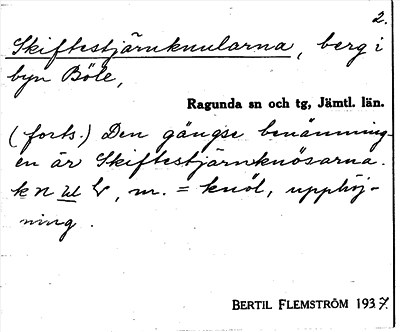 2.
Skiftestjärnknularna, berg i
byn Böle,
Ragunda sn och tg, Jämtl. län.
(forts.) Den gängse benämning-
en är Skiftestjärnknösarna.
m. = knöl, upphöj-
ning.
BERTIL FLEMSTRÖM 1937.